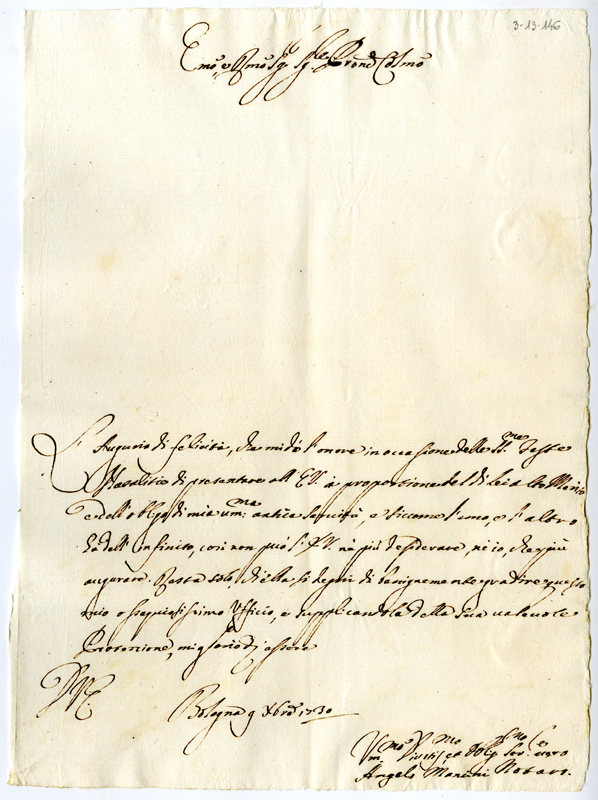 3-13-146
Emo, e Rmo Sigr Sigr Pron Col.mo
L'Augurio di felicità, che mi dò l'onore in occasione delle SS.me Feste
Natalitie di presentare all'E.V. è proporzionato al di Lei alto Merito
e dell'obblig di mia um.ma antica Servitù, e siccome l'uno, e l'altro
hà dell'infinito, così non può l'E.V. nè più desiderare, nè io, che più
augurare. Resta solo, ch'ella si degni di benignamente gradire questo
mio ossequiosissimo Ufficio, e supplicandola della sua valevole
Protezzione, mi glorio di essere
D V E
Bologna 9 Xbre 1730
Um.mo Div.mo ed Obblig Ser.re vero
Angelo Mancini Notaro.